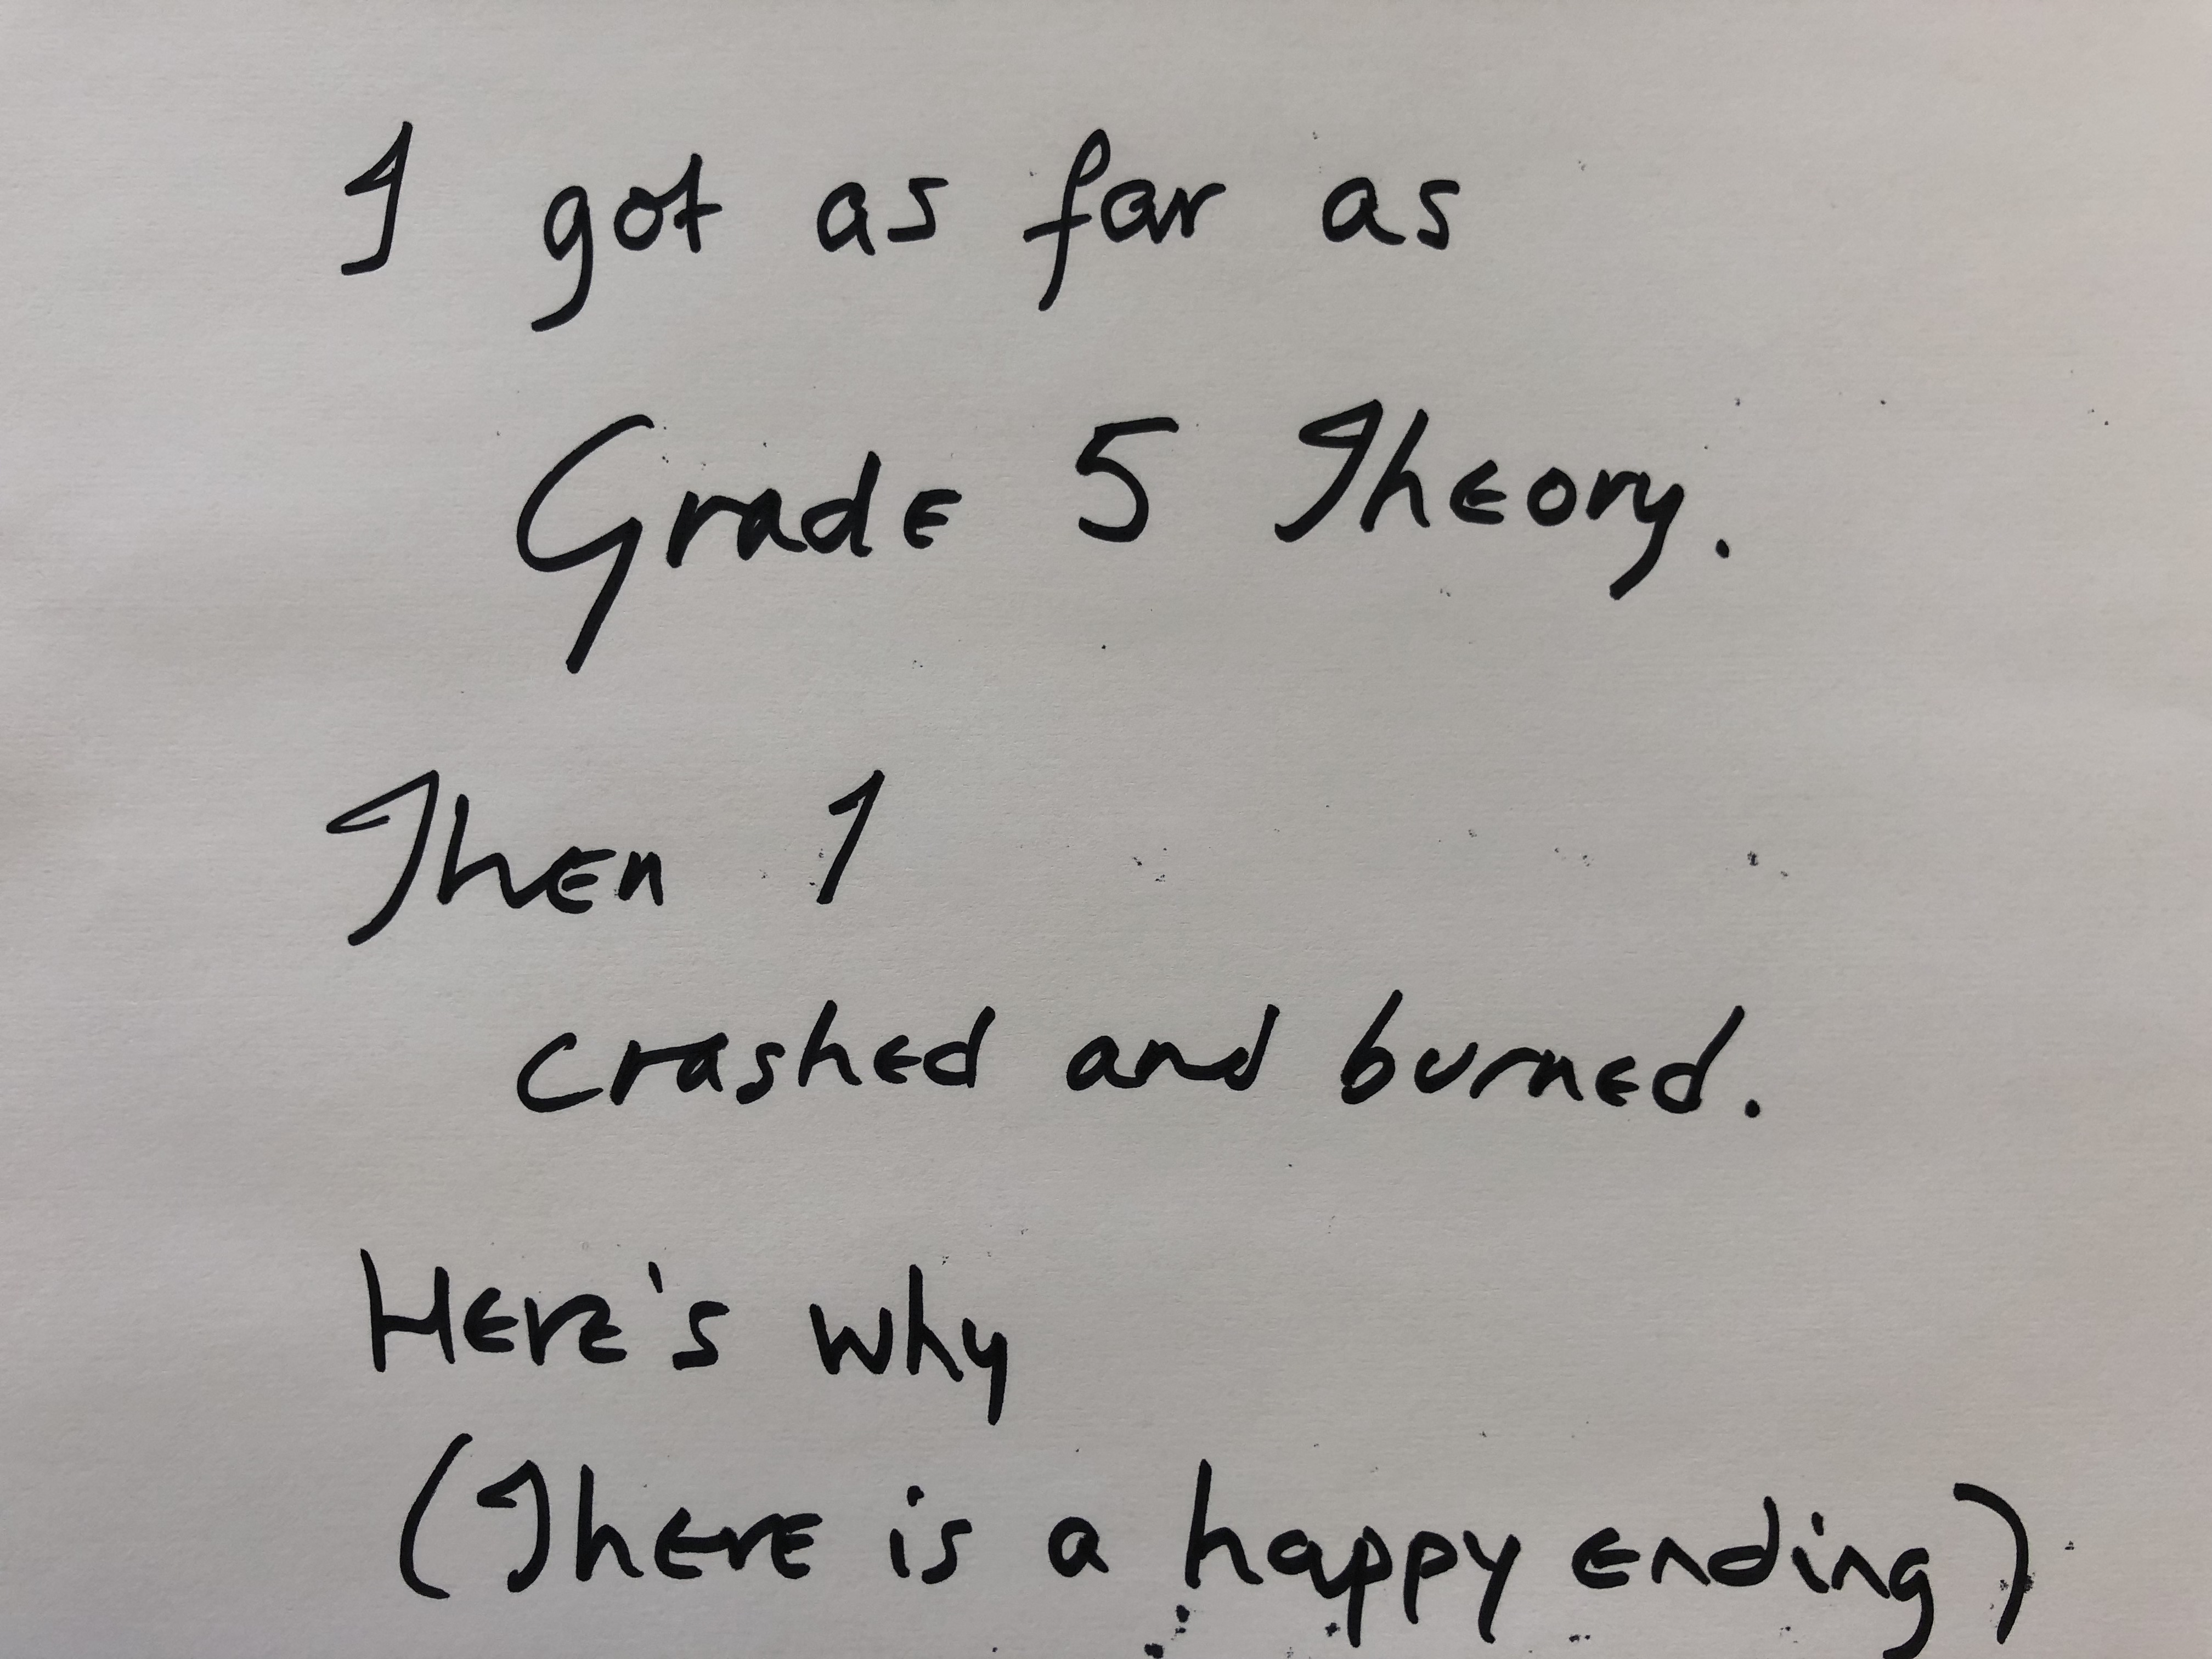 I got as far as
Grade 5 Theory.
Then I
crashed and burned.
Here's why
(There is a happy ending)